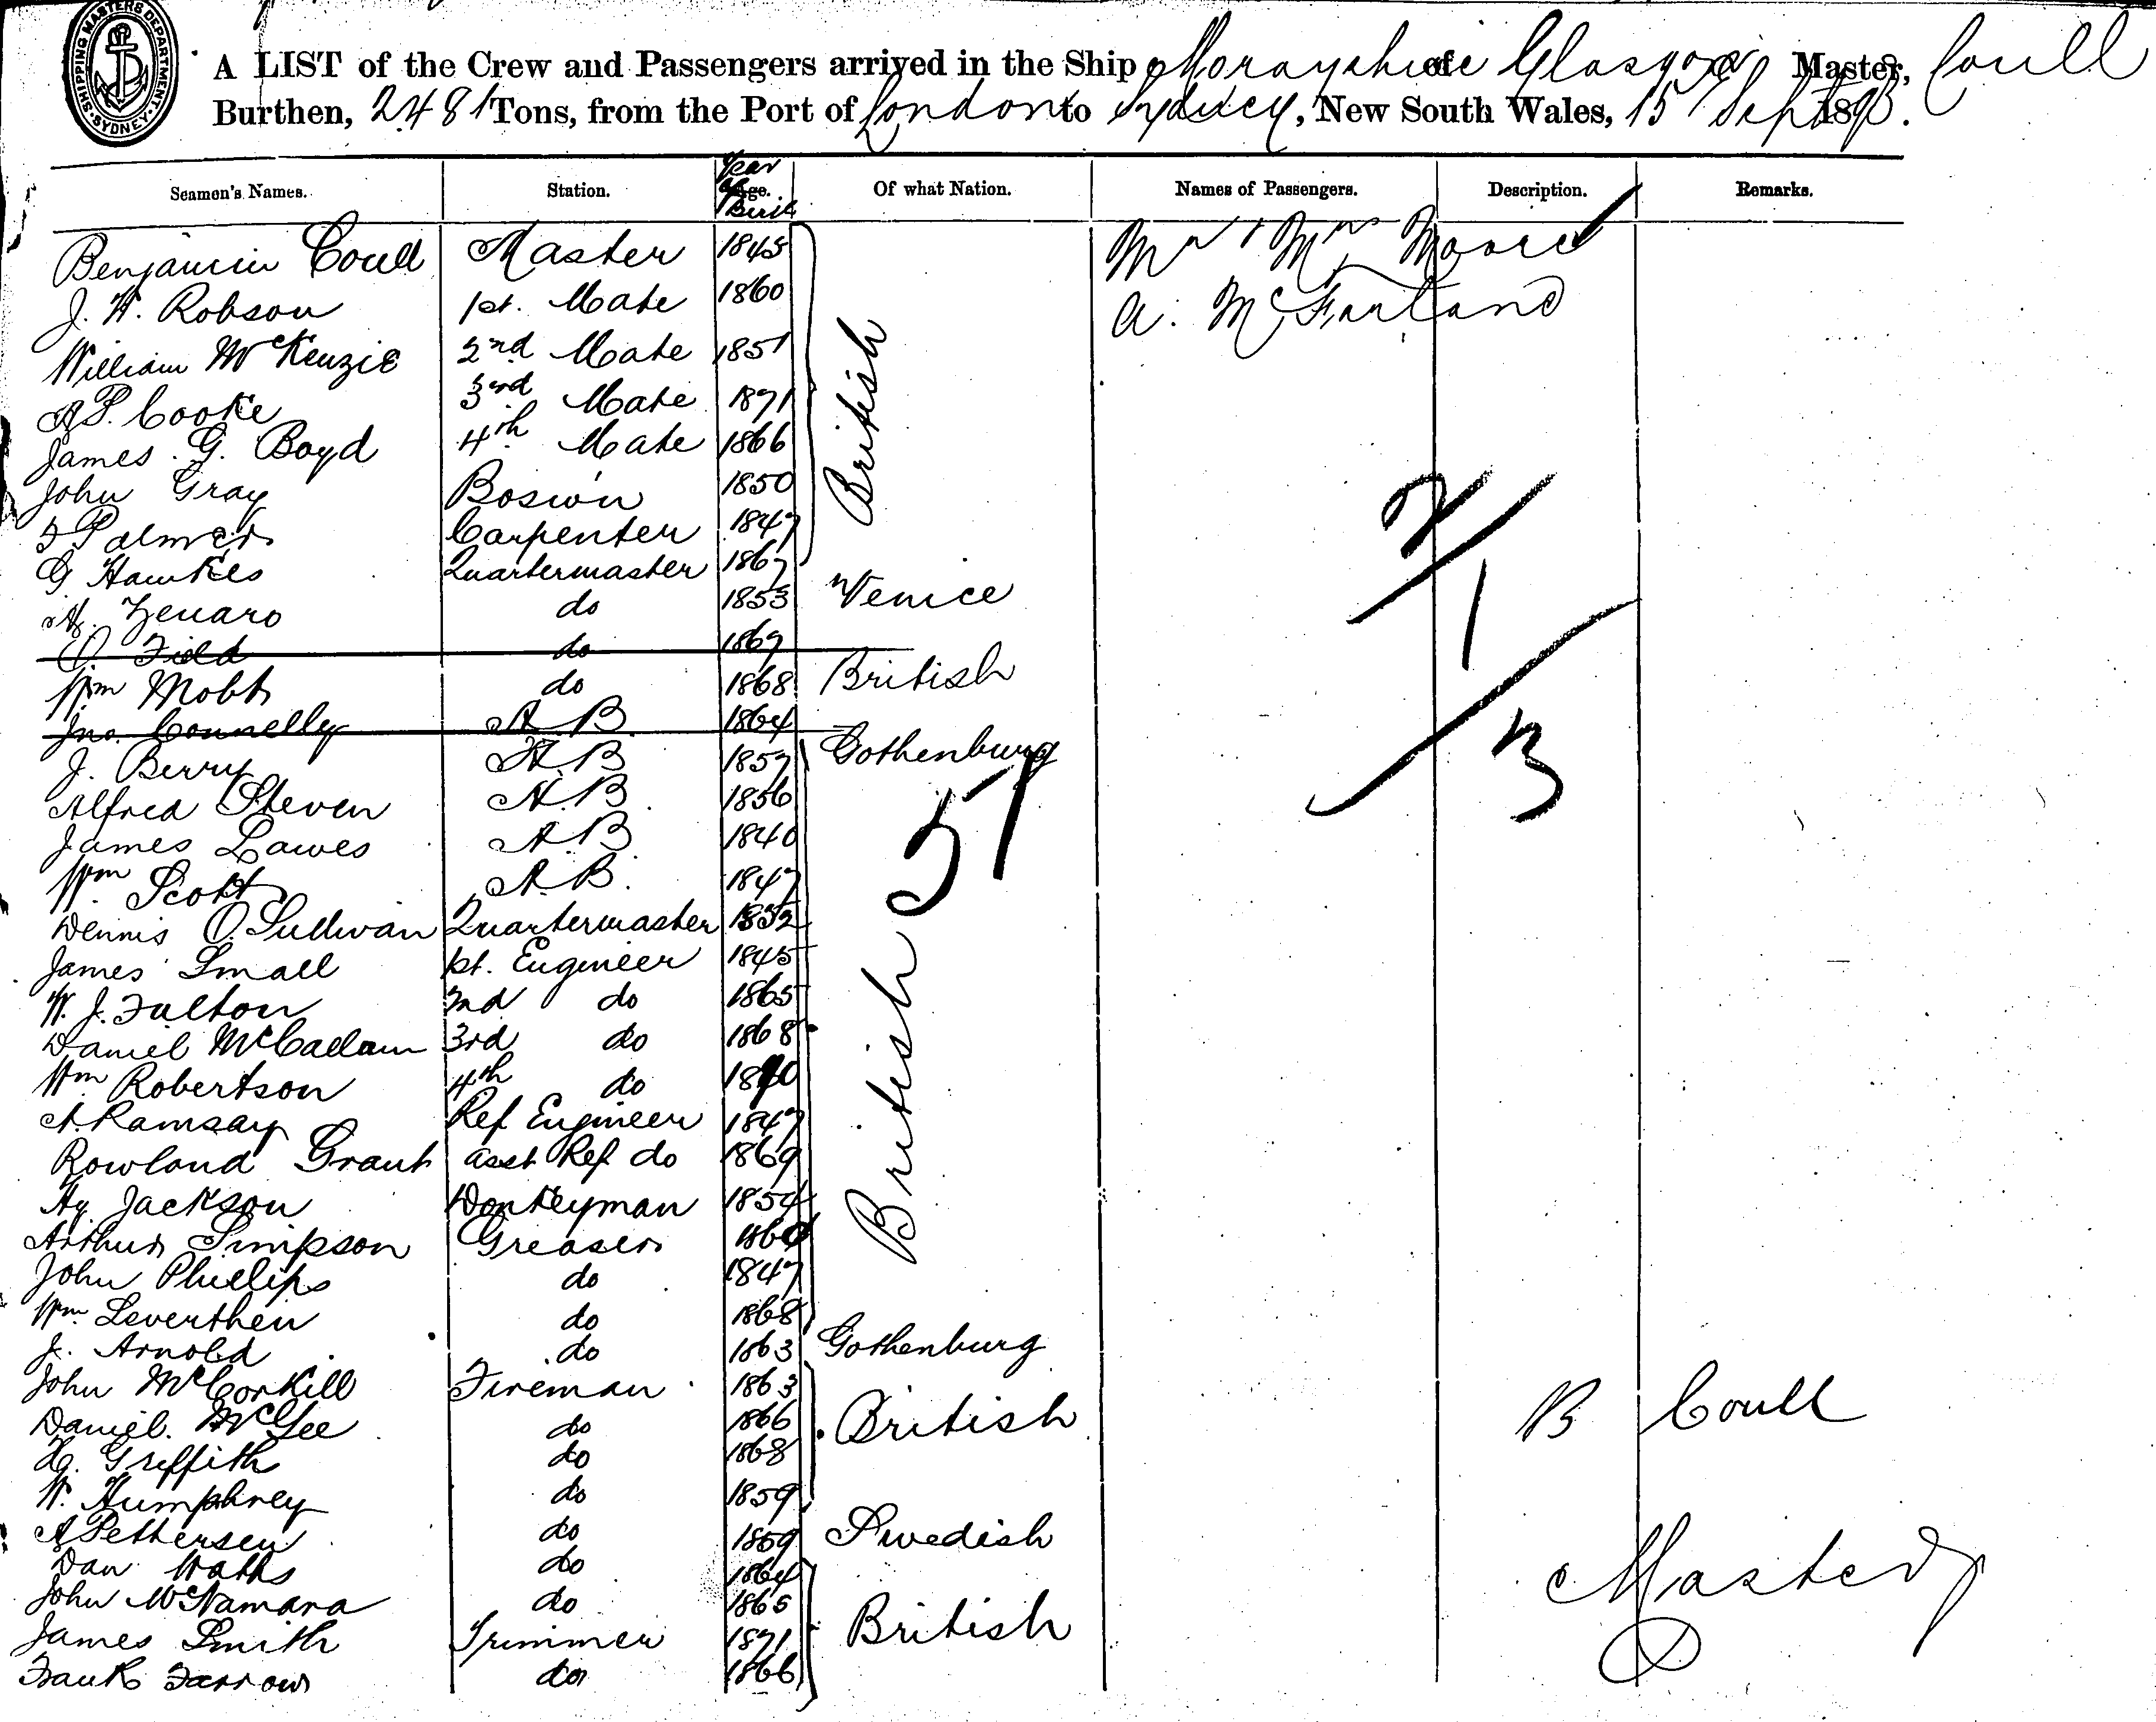 SHIPPING MASTERS DEPARTMENT SYDNEY
A LIST of the Crew and Passengers arrived in the Ship Morayshire of Glasgow Master, Coull
Burthen, 2481 Tons, from the Port of London to Sydney, New South Wales, 15 Sept 1893.
Seamen's Names. Station. Year of Birth Age. Of what Nation. Names of Passengers. Description. Remarks.
Benjamin Coull Master 1845 Mr & Mrs Moore
J. W. Robson 1st. Mate 1860 A. McFarland
William McKenzie 2nd Mate 1851
A P. Cooke 3rd Mate 1871
James. G. Boyd 4th Mate 1866 British
John Gray Bosw'n 1850
Palmer Carpenter 1847
G Hawkes Quartermaster 1867
A. Zenaro do 1853 Venice
O. Field do 1867
Wm Mobbs do 1868 British
Jno. Connelly A B 1864
J. Berry A. B 1857 Gothenburg
Alfred Steven A. B 1856
James Lawes A B 1840
Wm Scott A. B. 1847
Dennis O. Sullivan Quartermaster 1852
James Small 1st. Engineer 1845
W. J. Fulton 2nd do 1865
Daniel McCallum 3rd do 1868
Wm Robertson 4th do 1870
A. Ramsay Ref Engineer 1847 British
Rowland Grant Asst Ref do 1869
Hy Jackson Donkeyman 1854
Arthur Simpson Greaser
John Phillips do 1847
Wm Leverthen do 1868
J. Arnold do 1863 Gothenburg
John McCorkill Fireman 1863
Daniel. McGee do 1866 British
H. Griffith do 1868
W. Humphrey do 1859
A Pettersen do 1859 Swedish
Dan Watts do 1864
John McNamara do 1865
James Smith Trimmer 1871 British
Frank Farrow do 1866
57
2/1/3
B Coull
Master